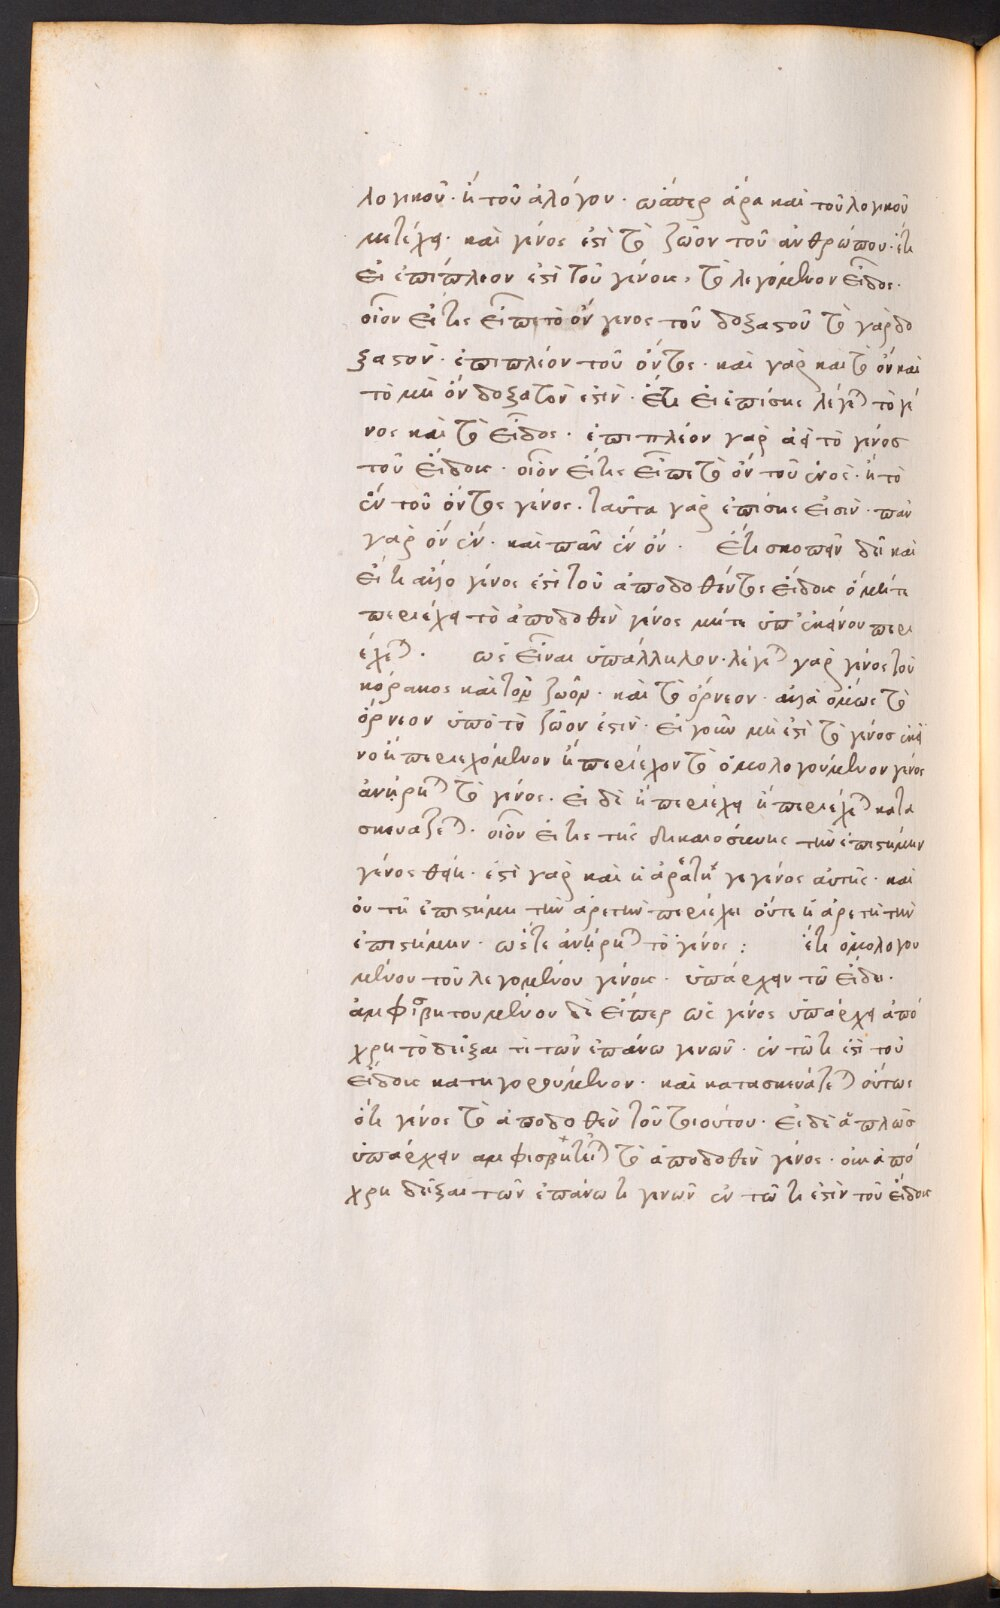 λογικοῦ· ἢ τοῦ ἀλόγου· ὥσπερ ἄρα καὶ τοῦ λογικοῦ
μετέχει· καὶ γένος ἐστὶ τὸ ζῶον τοῦ ἀνθρώπου· ἔτι
εἰ ἐπιπλεον ἐστὶ τοῦ γένους, τὸ λεγόμενον εἶδος·
οἷον εἴ τις εἶπε τὸ ὂν γενος τοῦ δοξαστοῦ τὸ γὰρ δο
ξαστὸν· ἐπιπλέον τοῦ ὄντος· καὶ γὰρ καὶ τὸ ὂν καὶ
τὸ μὴ ὂν δοξατὸν ἐστὶν· ἔτι εἰ ἐπίσης λέγεται τὸ γέ
νος καὶ τὸ εἶδος· ἐπιπλέον γὰρ ἀεὶ τὸ γένος
τοῦ εἴδους· οἷον εἴ τις εἶπε τὸ ὂν τοῦ ἑνὸς· ἢ τὸ
ἓν τοῦ ὄντος γένος· ταῦτα γὰρ ἐπίσης εἰσὶν· πᾶν
γὰρ ὂν ἓν· καὶ πᾶν ἓν ὄν· ἔτι σκοπεῖν δεῖ καὶ
εἴ τι ἄλλο γένος ἐστὶ τοῦ ἀποδοθέντος εἴδους ὃ μήτε
περιέχει τὸ ἀποδοθὲν γένος μήτε ὑπ' ἐκείνου περι
έχεται· ὡς εἶναι ὑπάλληλον· λέγεται γὰρ γένος τοῦ
κόρακος καὶ τὸ ζῶον· καὶ τὸ ὄρνεον· ἀλλὰ ὅμως τὸ
ὄρνεον ὑπὸ τὸ ζῶον ἐστιν· εἰ γοῦν μὴ ἐστὶ τὸ γένος ἐκεῖ
νο ἢ περιεχόμενον ἢ περιέχον τὸ ὁμολογούμενον γένος
ἀνῄρηται τὸ γένος· εἰ δὲ ἢ περιέχει ἢ περιέχεται κατα
σκευάζεται· οἷον εἴ τις τῆς δικαιοσύνης τὴν ἐπιστήμην
γένος θείη· ἐστὶ γὰρ καὶ ἡ ἀρετὴ γε γένος αὐτῆς· καὶ
οὐ τῆ ἐπιστήμη τὴν ἀρετὴν περιέχει οὔτε ἡ ἀρετὴ τὴν
ἐπιστήμην· ὥστε ἀνῄρηται τὸ γένος: ἔτι ὁμολογου
μένου τοῦ λεγομένου γένους· ὑπάρχειν τῶ εἴδει·
ἀμφισβητουμένου δὲ εἴπερ ὡς γένος ὑπάρχει ἀπό
χρη τὸ δεῖξαι τὶ τῶν ἐπάνω γενῶν· ἐν τῶ τί ἐστὶ τοῦ
εἴδους κατηγορούμενον· καὶ κατασκευάζεται οὕτως
ὅτι γένος τὸ ἀποδοθὲν τοῦ τοιούτου· εἰ δὲ ἁπλῶς
ὑπάρχειν αμφισβητεῖται τὸ ἀποδοθὲν γένος· οὐκ ἀπό
χρη δεῖξαι τῶν ἐπάνω τι γενῶν ἐν τῶ τι ἐστὶν τοῦ εἴδους